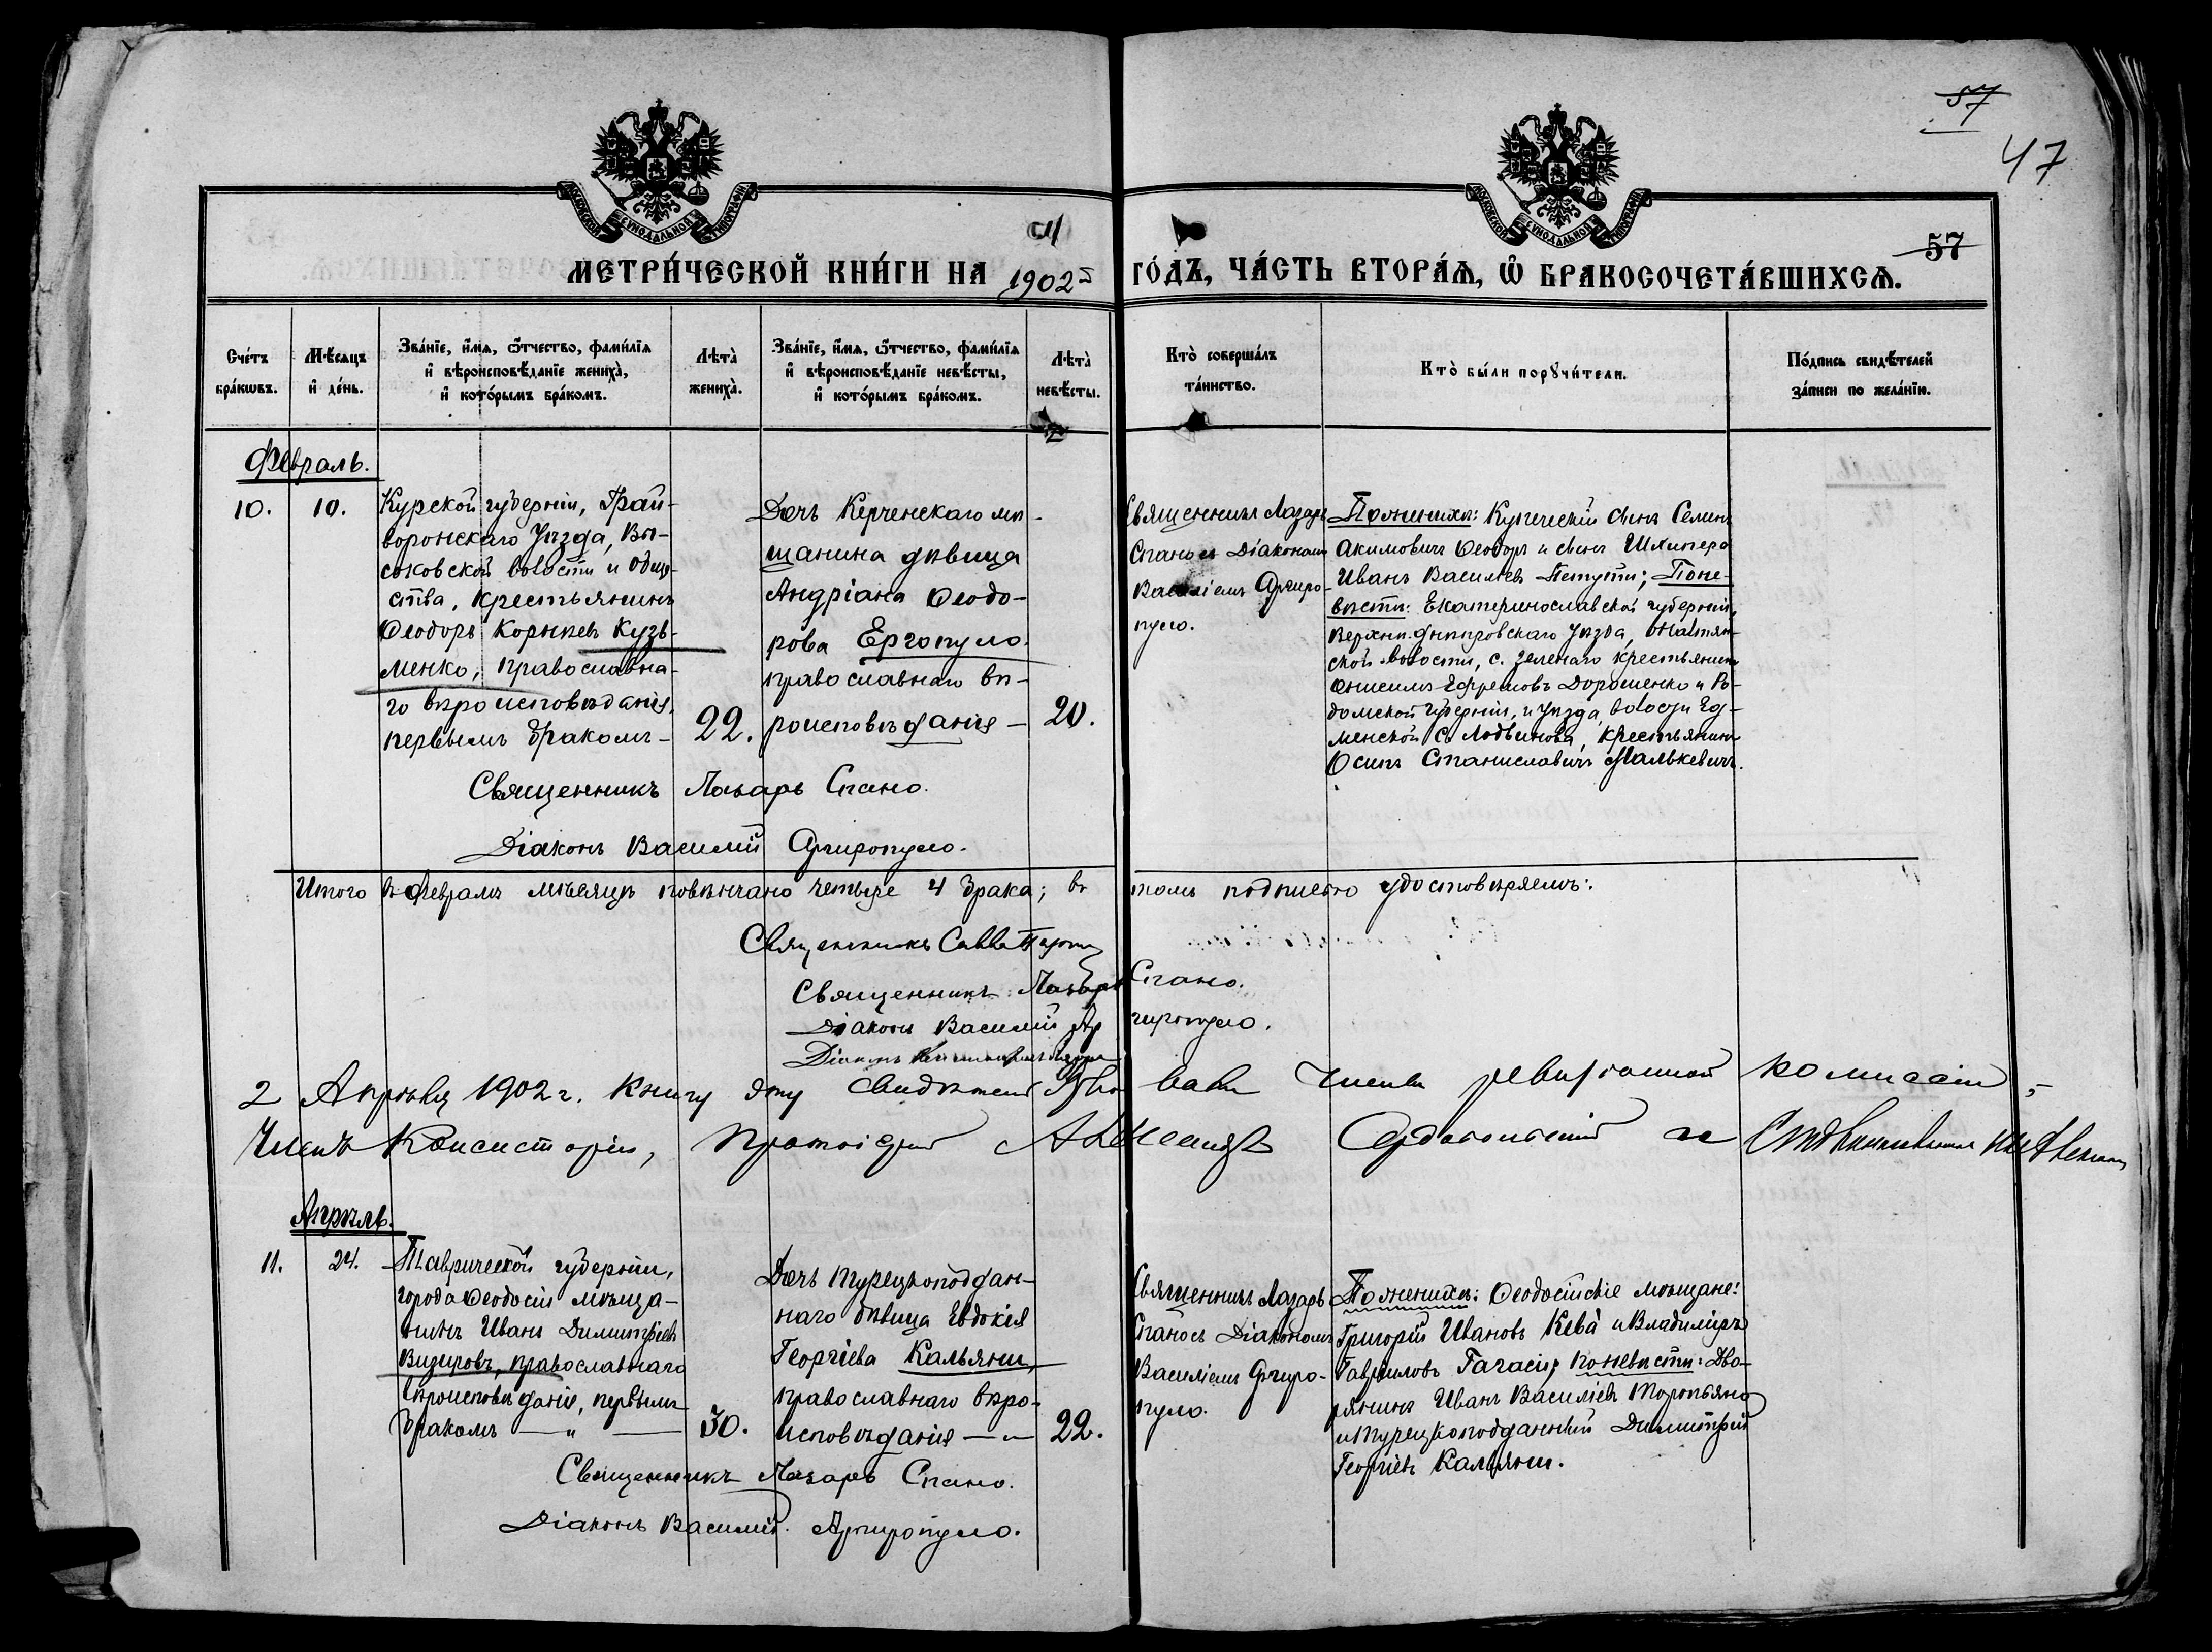 57
47
МОСКОВСКОЙ СУНОДАЛЬНОЙ ТИПОГРАФІИ
МОСКОВСКОЙ СУНОДАЛЬНОЙ ТИПОГРАФІИ
57
МЕТРИ́ЧЕСКОЙ КНИ́ГИ НА 1902 ГО́ДЪ, ЧА́СТЬ ВТОРА́Ѧ, Ѡ҆ БРАКОСОЧЕТА́ВШИХСѦ.
Сче́тъ
бра́кѡвъ.
Мѣ́сяцъ
и҆ де́нь.
Зва́нїе, и҆́мѧ, ѻ҆́тчество, фами́лїѧ
и҆ вѣроисповѣ́данїе жениха̀,
и҆ кото́рымъ бра́комъ.
Лѣта̀
жениха̀.
Зва́нїе, и҆́мѧ, ѻ҆́тчество, фами́лїѧ
и҆ вѣроисповѣ́данїе невѣ́сты,
и҆ кото́рымъ бра́комъ.
Лѣта̀
невѣ́сты.
Кто̀ соверша́лъ
та́инство.
Кто̀ бы́ли порꙋчи́тели.
По́дпись свидѣ́телей
за́писи по жела́нїю.
Февраль.
10.
10.
Курской губерніи, Грай-
воронскаго Уѣзда, Вы-
соковской волости и обще-
ства, крестьянинъ
Ѳеодоръ Корнѣевъ Кузь-
менко, православна-
го вѣроисповѣданія,
первымъ бракомъ-
22.
Дочь Керченскаго мѣ-
щанина дѣвица
Андріана Ѳеодо-
рова Ергопуло.
православнаго вѣ-
роисповѣданія —
20.
Священникъ Лазарь
Спано съ Діакономъ
Василіемъ Аргиро-
пуло.
По женихѣ: Купеческій сынъ Семенъ
Акимовичъ Ѳеодоръ и сынъ Шкипера
Иванъ Василіевъ Петути; По не-
вѣстѣ: Екатеринославской губерніи,
Верхнеднѣпровскаго Уѣзда,
ской волости, с. Зеленаго крестьянинъ
Онисимъ Ефремовъ Дорошенко и Ра-
домской Губерніи, и Уѣзда, волости Ед-
менской с. Лодвинова, крестьянинъ
Осипъ Станиславичъ Малькевичъ.
Священникъ Лазарь Спано.
Діаконъ Василій Аргиропуло.
Итого въ Февралѣ мѣсяцѣ повѣнчано четыре 4 брака; въ томъ подписью удостовѣряемъ:
Священникъ Савва
Священникъ Лазарь Спано.
Діаконъ Василій Аргиропуло.
Діаконъ
2 Апрѣля 1902 г. Книгу эту свидѣтельствовали Члены ревизіонной комиссіи,
Членъ Консисторіи, Протоіерей Александръ Сердобольскій и
Апрѣль.
11.
24.
Таврической губерніи,
города Ѳеодосіи мѣща-
нинъ Иванъ Димитріевъ
Визировъ, православнаго
вѣроисповѣданія, первымъ
бракомъ — „ —
30.
Дочь турецкоподдан-
наго дѣвица Евдокія
Георгіева Кальяни,
православнаго вѣро-
исповѣданія — „ —
22.
Священникъ Лазарь
Спано съ Діакономъ
Василіемъ Аргиро-
пуло.
По женихѣ: Ѳеодосійскіе мѣщане:
Григорій Ивановъ Кева и Владиміръ
Гавриловъ Гагаси; по невѣстѣ: Дво-
рянинъ Иванъ Василіевъ Торопьяно
и турецкоподданный Димитрій
Георгіевъ Кальяни.
Священникъ Лазарь Спано.
Діаконъ Василій Аргиропуло.